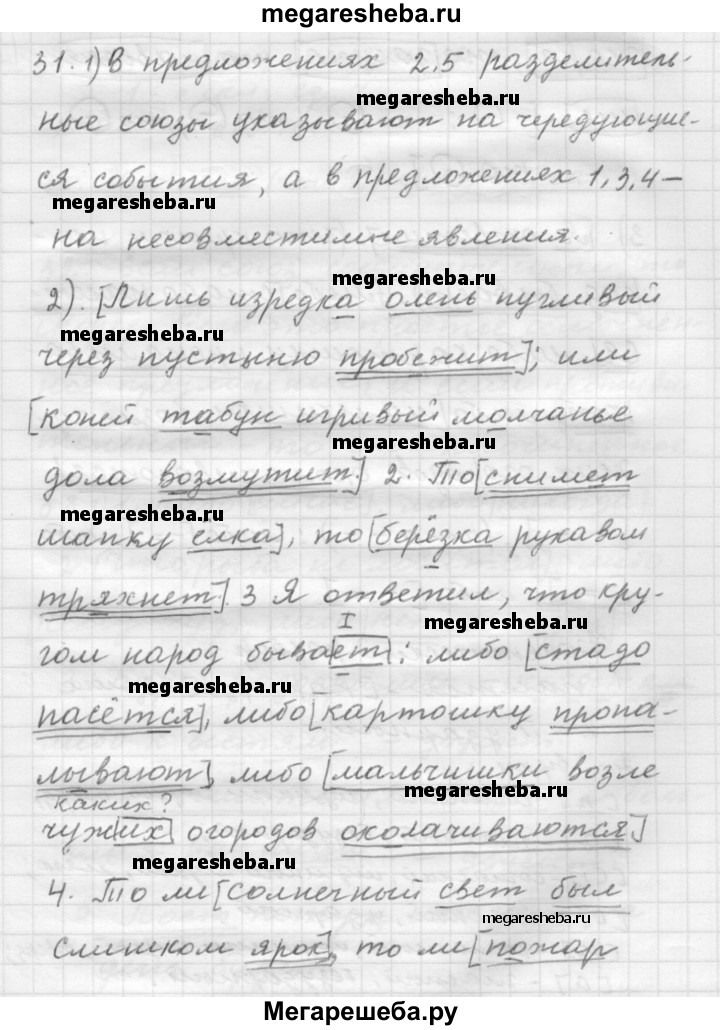 megaresheba.ru
31. 1) В предложениях 2,5 разделитель-
megaresheba.ru
ные союзы указывают на чередующие-
ся события, а в предложениях 1,3,4 –
megaresheba.ru
на несовместимые явления.
megaresheba.ru
2). [Лишь изредка олень пугливый
megaresheba.ru
через пустыню пробежит]; или
[коней табун игривый молчанье
megaresheba.ru
дола возмутит.] 2. То [снимет
megaresheba.ru
шапку ёлка], то [берёзка рукавом
тряхнет]. 3 Я ответил, что кру-
megaresheba.ru
I
гом народ бывает: либо [стадо
megaresheba.ru
пасётся], либо [картошку пропа-
лывают], либо [мальчишки возле
megaresheba.ru
каких?
чужих огородов околачиваются]
megaresheba.ru
4. То ли [солнечный свет был
megaresheba.ru
слишком ярок], то ли [пожар
Мегарешеба.ру